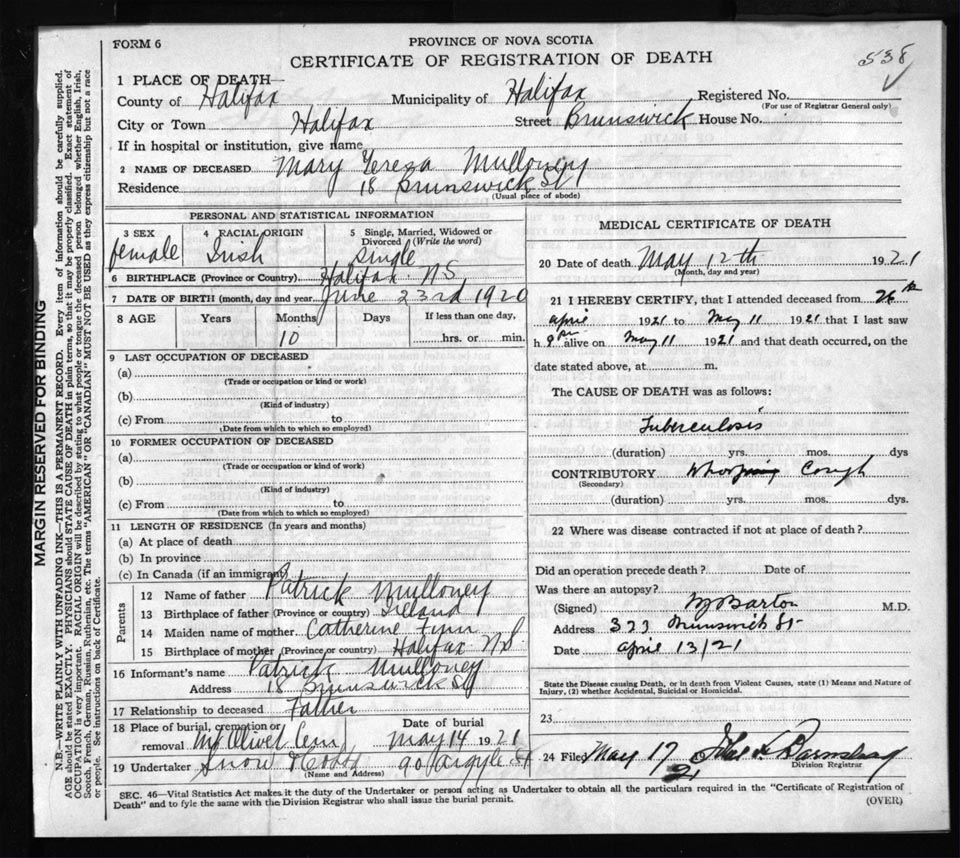 FORM 6
PROVINCE OF NOVA SCOTIA
538
CERTIFICATE OF REGISTRATION OF DEATH
1 PLACE OF DEATH—
County of Halifax Municipality of Halifax Registered No.
(For use of Registrar General only)
City or Town Halifax Street Brunswick House No.
If in hospital or institution, give name
2 NAME OF DECEASED Mary Teresa Mulloney
Residence 18 Brunswick St
(Usual place of abode)
PERSONAL AND STATISTICAL INFORMATION
3 SEX 4 RACIAL ORIGIN 5 Single, Married, Widowed or
Divorced (Write the word)
female Irish single
6 BIRTHPLACE (Province or Country) Halifax N.S.
7 DATE OF BIRTH (month, day and year June 23rd 1920
8 AGE Years Months Days If less than one day,
10 hrs. or min.
9 LAST OCCUPATION OF DECEASED
(a)
(Trade or occupation or kind or work)
(b)
(Kind of industry)
(c) From to
(Date from which to which so employed)
10 FORMER OCCUPATION OF DECEASED
(a)
(Trade or occupation or kind or work)
(b)
(Kind of industry)
(c) From to
(Date from which to which so employed)
11 LENGTH OF RESIDENCE (In years and months)
(a) At place of death
(b) In province
(c) In Canada (if an immigrant)
Parents
12 Name of father Patrick Mulloney
13 Birthplace of father (Province or country) Ireland
14 Maiden name of mother Catherine Finn
15 Birthplace of mother (Province or country) Halifax NS
16 Informant's name Patrick Mulloney
Address 18 Brunswick St
17 Relationship to deceased Father
18 Place of burial, cremation or Date of burial
removal Mt Olivet Cem May 14 1921
19 Undertaker Snow 90 Argyle St
(Name and Address)
MEDICAL CERTIFICATE OF DEATH
20 Date of death May 12th 1921
(Month, day and year)
21 I HEREBY CERTIFY, that I attended deceased from 26th
april 1921 to May 11 1921 that I last saw
h er alive on May 11 1921 and that death occurred, on the
date stated above, at m.
The CAUSE OF DEATH was as follows:
Tuberculosis
(duration) yrs. mos. dys
CONTRIBUTORY Whooping Cough
(Secondary)
(duration) yrs. mos. dys.
22 Where was disease contracted if not at place of death?
Did an operation precede death? Date of
Was there an autopsy?
(Signed) Barton M.D.
Address 323 Brunswick St-
Date april 13/21
State the Disease causing Death, or in death from Violent Causes, state (1) Means and Nature of
Injury, (2) whether Accidental, Suicidal or Homicidal.
23
24 Filed May 17 21
Division Registrar
SEC. 46—Vital Statistics Act makes it the duty of the Undertaker or person acting as Undertaker to obtain all the particulars required in the "Certificate of Registration of
Death" and to fyle the same with the Division Registrar who shall issue the burial permit. (OVER)
MARGIN RESERVED FOR BINDING
N.B.—WRITE PLAINLY WITH UNFADING INK—THIS IS A PERMANENT RECORD. Every item of Information should be carefully supplied.
AGE should be stated EXACTLY. PHYSICIANS should STATE CAUSE OF DEATH in plain terms, so that it may be properly classified. Exact statement of
OCCUPATION is very important. RACIAL ORIGIN will be described by stating to what people or tongue the deceased person belonged whether English, Irish,
Scotch, French, German, Russian, Ruthenian, etc. The terms "AMERICAN" OR "CANADIAN" MUST NOT BE USED as they express citizenship but not a race
or people. See instructions on back of Certificate.